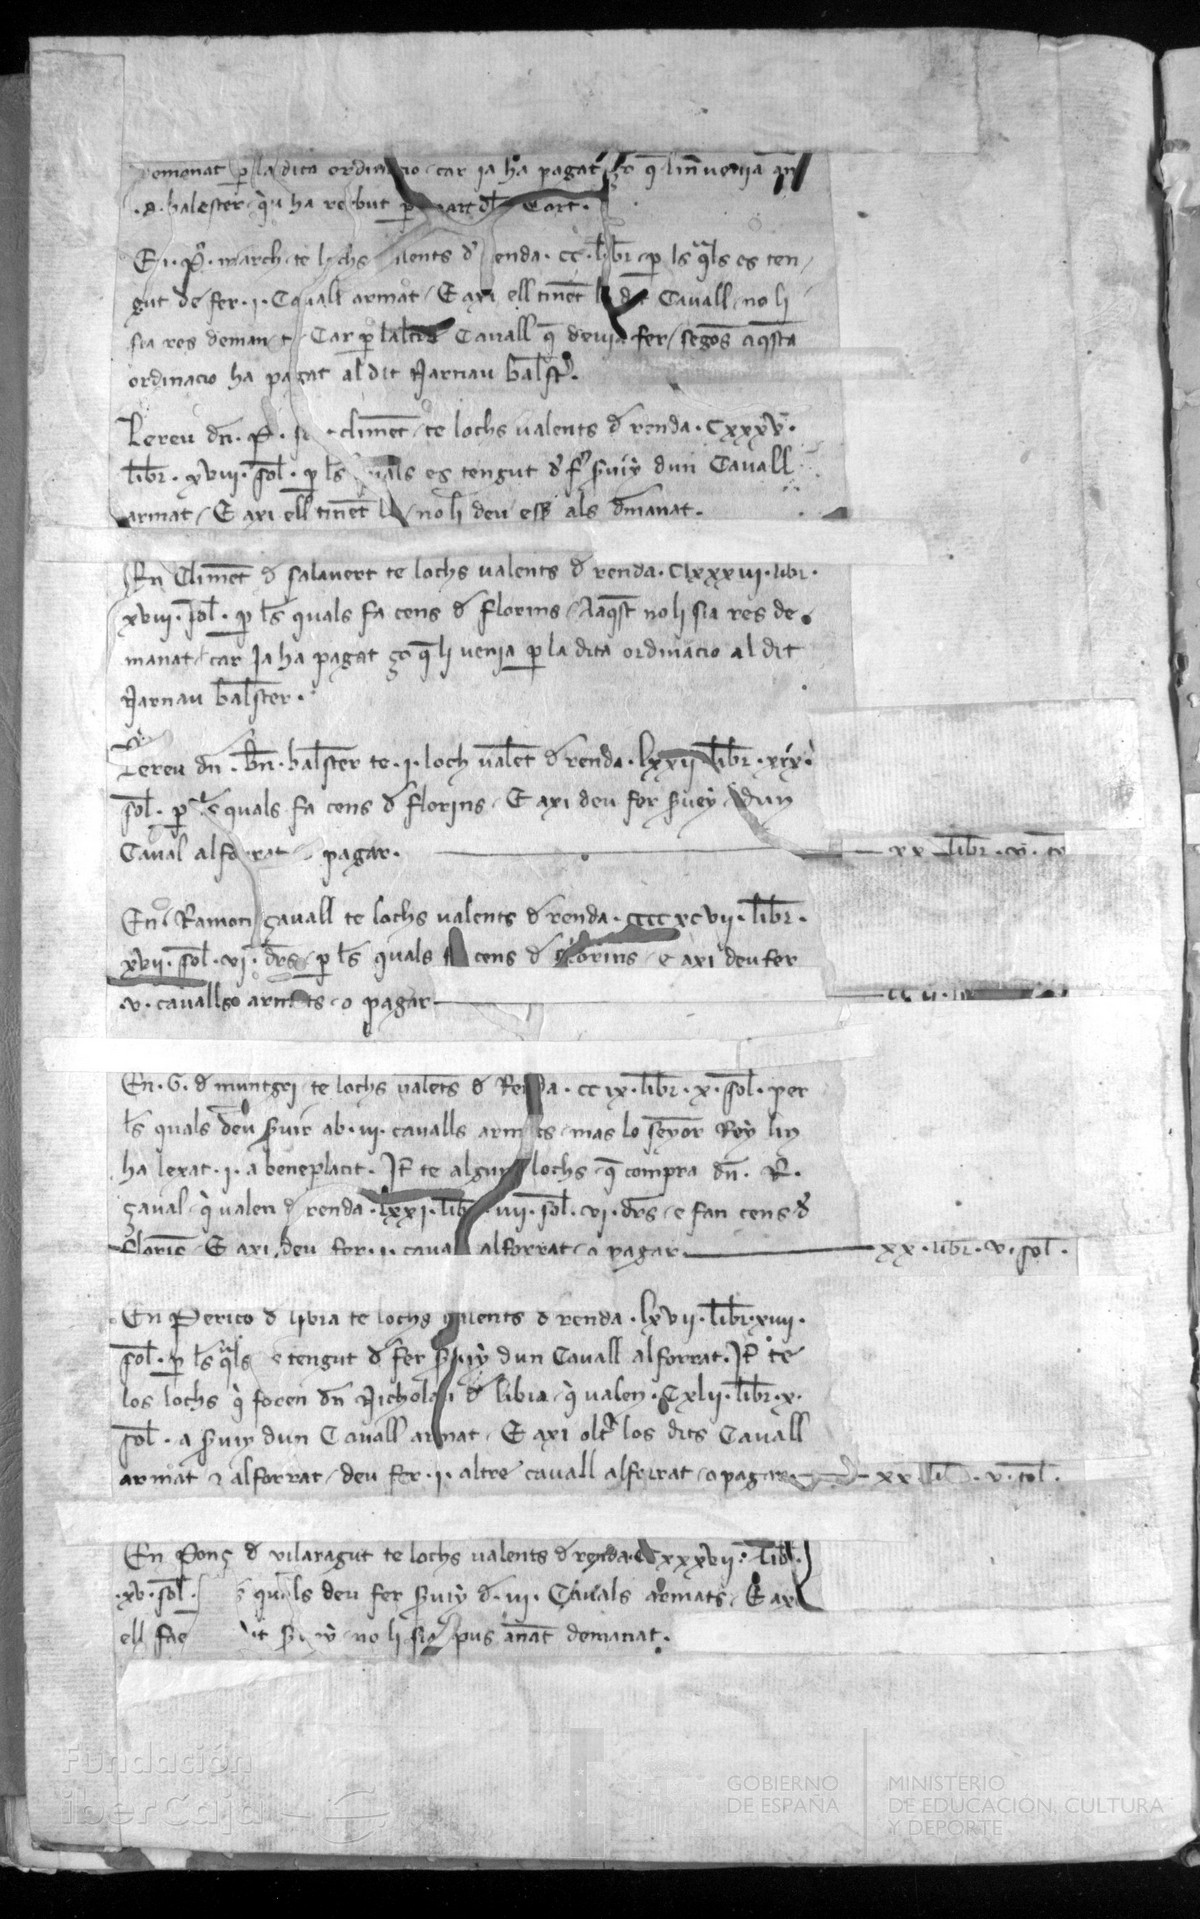 demanat p la dita ordinacio car ja ha pagat ço q linvenja an
.A. balester qui ha rebut p part dl Cort.
En .P. march te lochs valents d renda . CC . libr . p ls quals es ten
gut de fer .I. Cavall armat E axi ell tinent lo dit Cavall no li
sia res demanat Car p laltre Cavall q devia fer segons aqsta
ordinacio ha pagat al dit Narnau balest.
Lereu dn . P . climent te lochs valents d renda . CXXXV .
libr . XVIII . sol . p ls quals es tengut d fer serviy dun Cavall
armat E axi ell tinent lo no li deu esser als dmanat .
En Climent d salavert te lochs valents d renda . CLXXXIII . libr .
XVIII . sol . p ls quals fa cens d florins Aaqst no li sia res de
manat car Ja ha pagat ço q li venja p la dita ordinacio al dit
Narnau balester .
Lereu dn . bn . balester te .I. loch valent d renda . LXXII libr . XIX .
sol . p ls quals fa cens d florins E axi deu fer servey dun
Caval alforrat o pagar . XX libr . V . sol
En Ramon çavall te lochs valents d renda . CCCCXCVII . libr .
XVII . sol . VI . drs p ls quals fa cens d florins e axi deu fer
.V. cavalls armats o pagar CCII . libr
En . G . d muntgri te lochs valents d Renda . CCIX . libr . X . sol . per
ls quals deu servir ab .III. cavalls armats mas lo senyor Rey lin
ha lexat .I. a beneplacit . It te alguns lochs q compra dn . R .
çaval qui valen d renda . LXXI . libr IIII . sol . VI . drs e fan cens d
florins E axi deu fer .II. cavall alforrat o pagar XX . libr . V . sol .
En Perico d livia te lochs valents d renda . LXVII . libr . XIIII .
sol . p ls quals es tengut d fer serviy dun Cavall alforrat . It te
los lochs qui foren dn Nicholau d libia qui valen . CXLII . libr . X .
sol . a serviy dun Cavall armat E axi oltra los dits Cavall
armat e alforrat deu fer .I. altre cavall alforrat o pagar XX libr . V . sol .
En Ponç d vilaragut te lochs valents d renda XXXVII . libr .
.XV. sol . quals deu fer serviy d .III. Cavals armats E axi
ell fae dit serviy no li sia pus anant demanat .
Fundación
iberCaja
GOBIERNO
DE ESPAÑA
MINISTERIO
DE EDUCACIÓN, CULTURA
Y DEPORTE